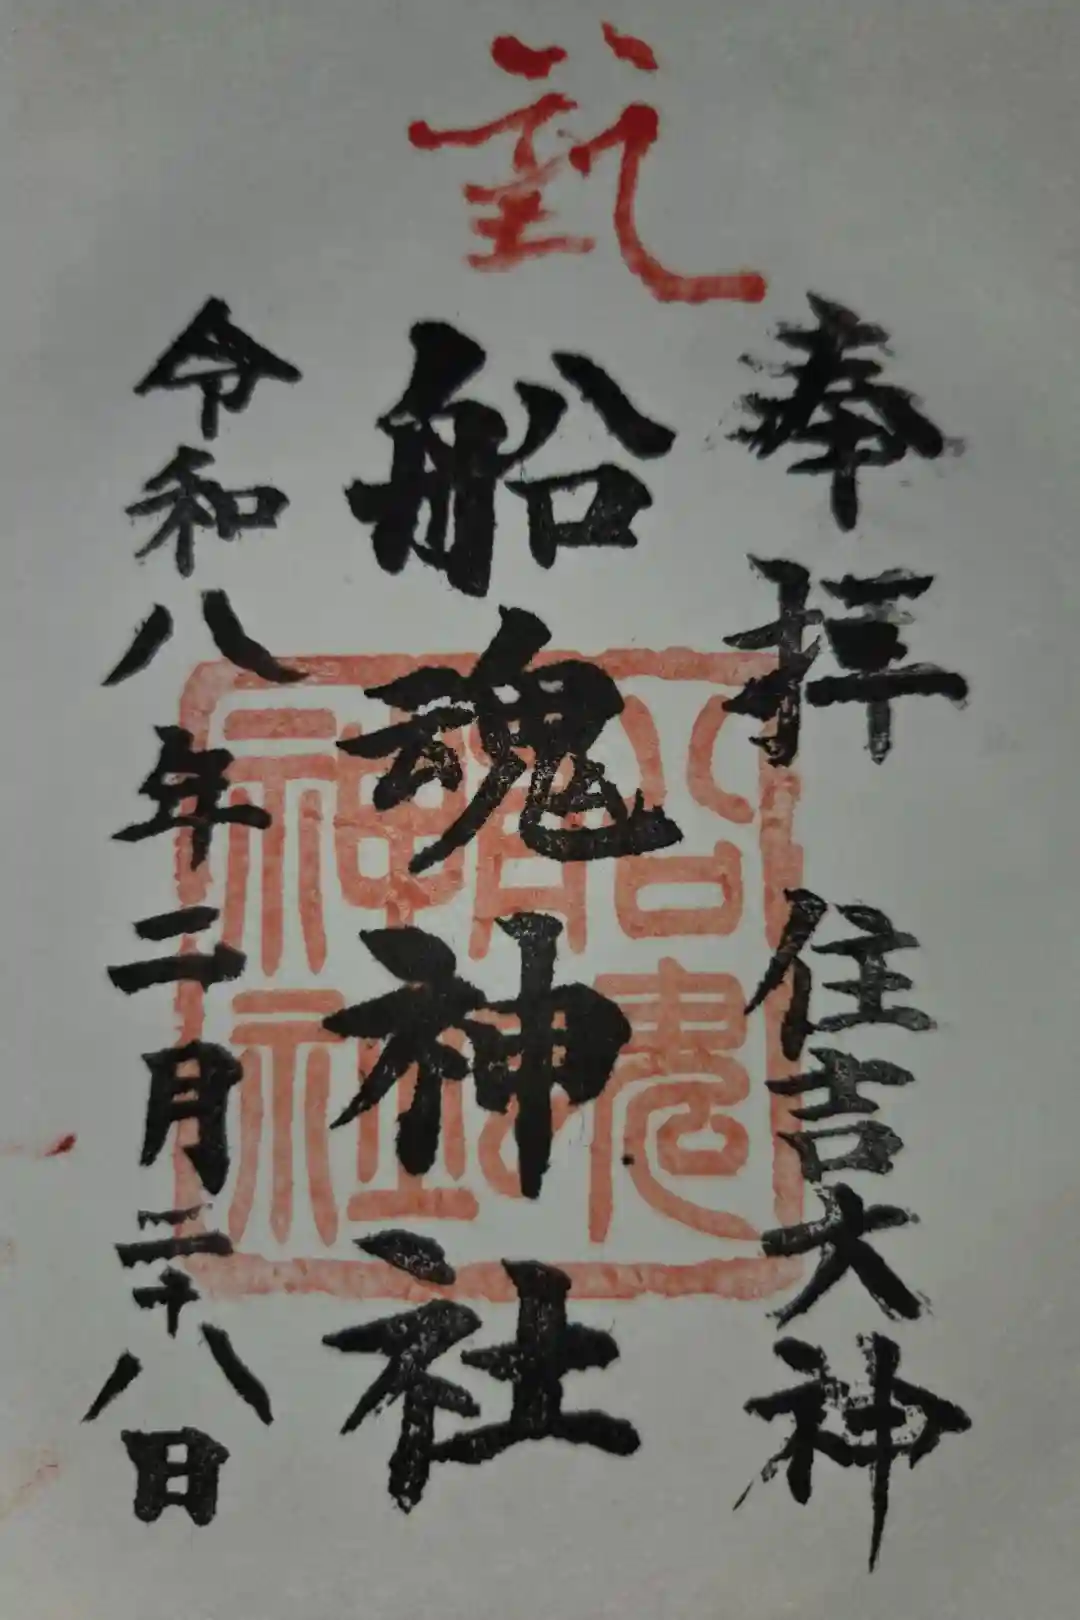 奉拝 住吉大神
船魂神社
令和八年二月二十八日
船魂神社